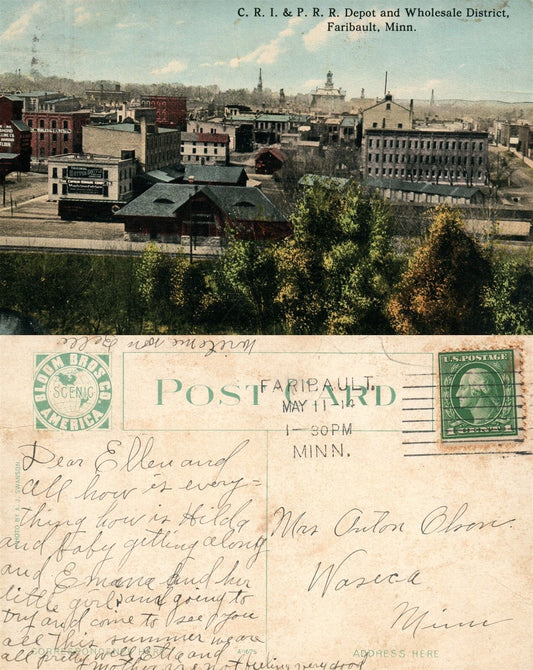 C. R. I. & P. R. R. Depot and Wholesale District,
Faribault, Minn.
Write me soon Belle
BLOOM BROS CO.
SCENIC
AMERICA
POST CARD
FARIBAULT.
MAY 11-14
1-30PM
MINN.
U.S. POSTAGE
PHOTO BY A. J. SWANSON
Dear Ellen and
all how is every=
thing how is Hilda
and baby getting along
and Emma and her
little girl, am going to
try and come to see you
all this summer we are
all pretty well Etta and
Mother are not feeling very good
Mrs Anton Olson.
Waseca
Minn
CORRESPONDENCE HERE
ADDRESS HERE